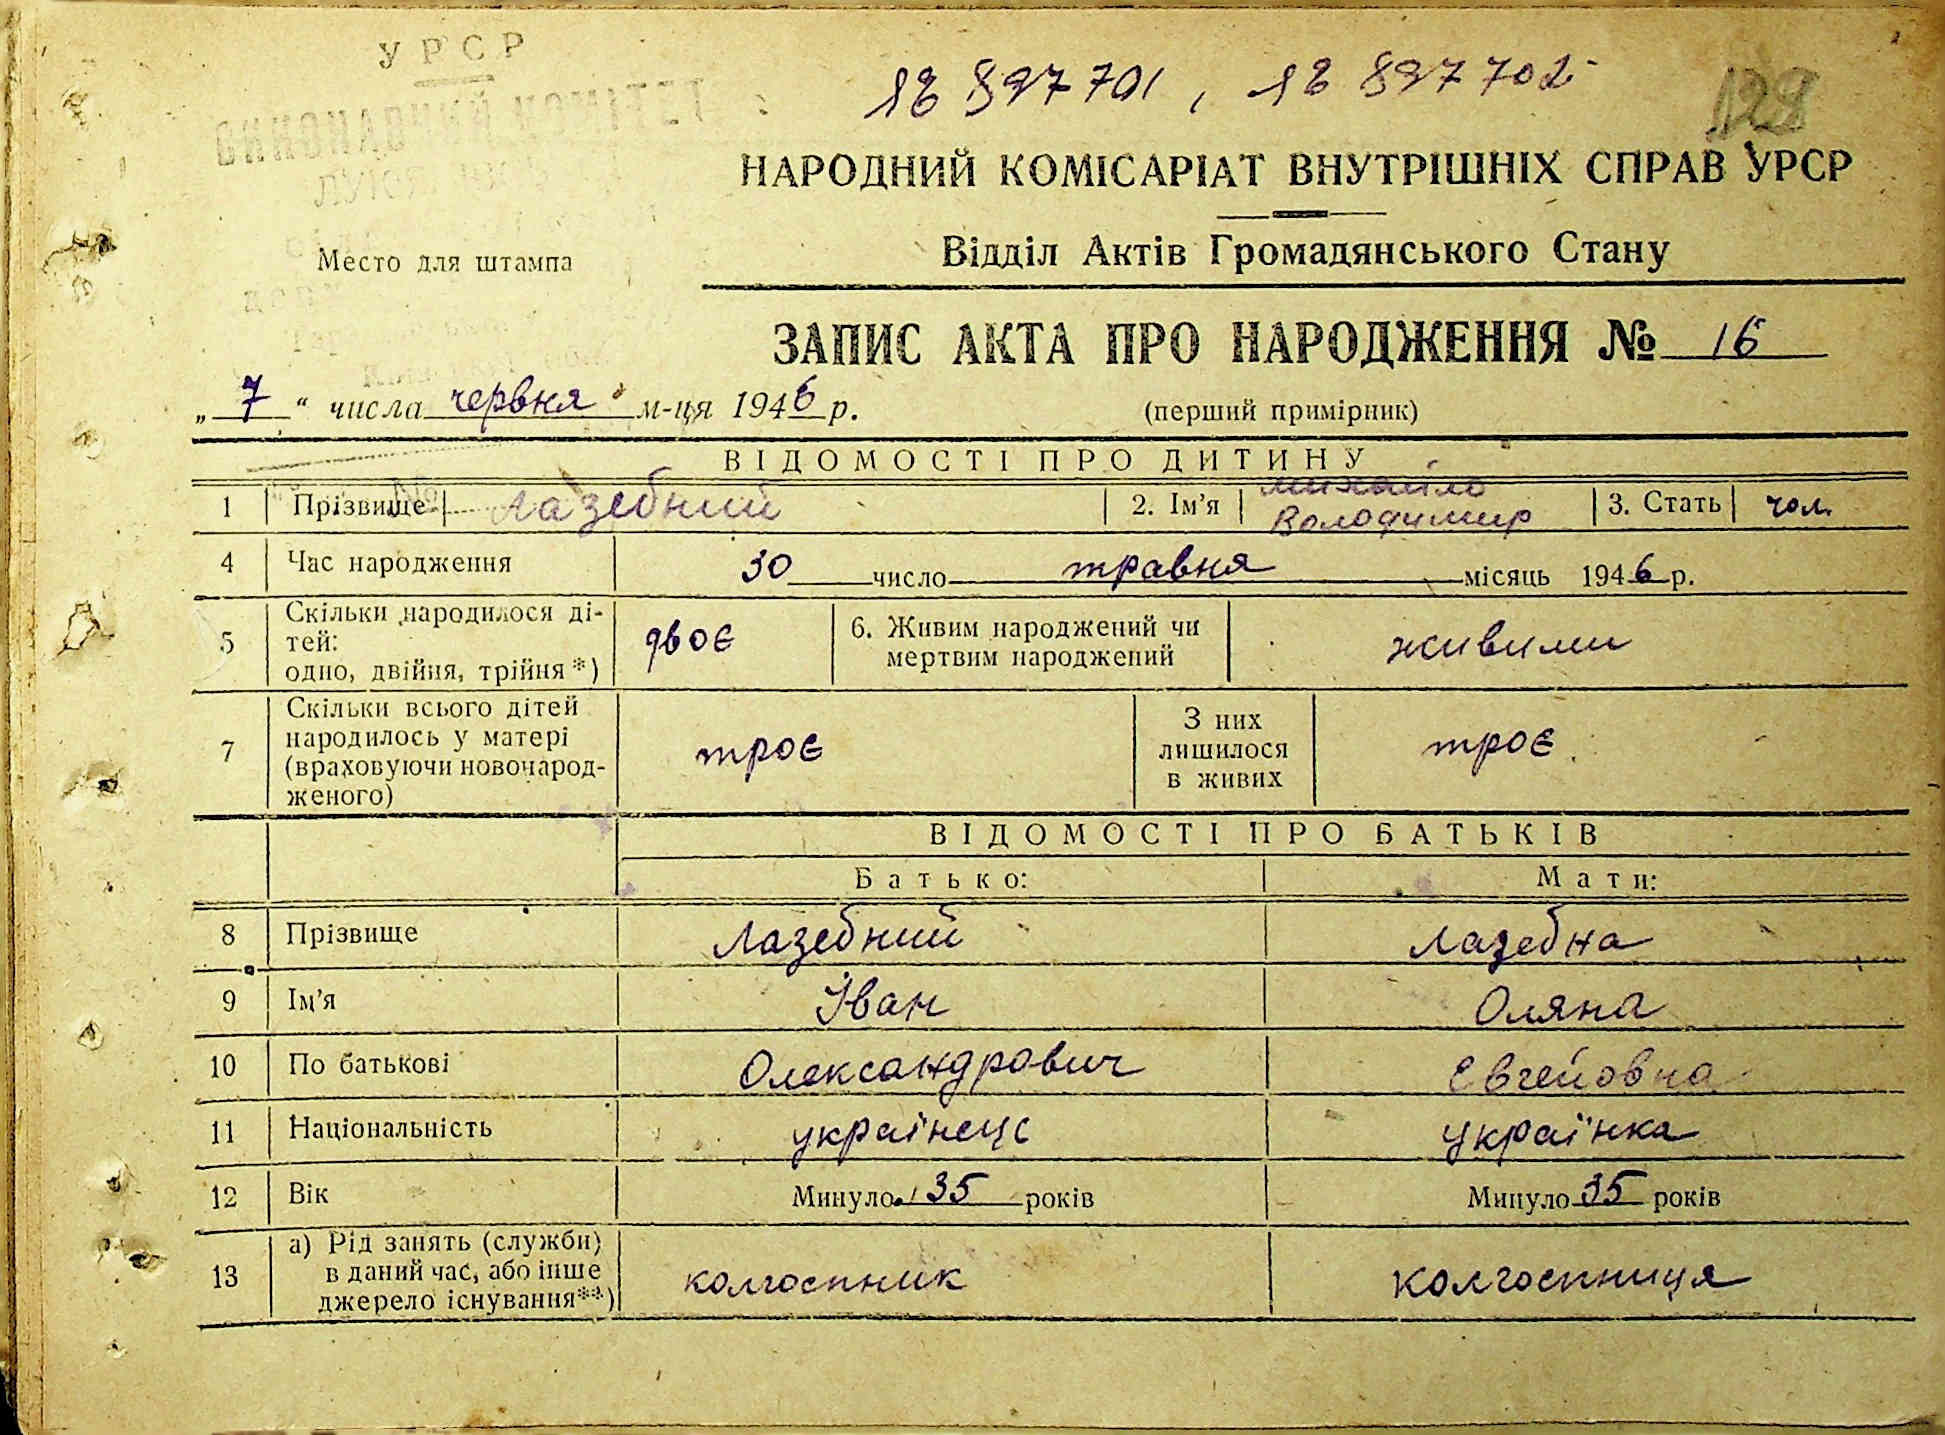 УРСР
1Е 897701, 1Е 897702
128
НАРОДНИЙ КОМІСАРІАТ ВНУТРІШНІХ СПРАВ УРСР
Место для штампа
Відділ Актів Громадянського Стану
ЗАПИС АКТА ПРО НАРОДЖЕННЯ № 16
„ 7 “ числа червня м-ця 1946 р.
(перший примірник)
ВІДОМОСТІ ПРО ДИТИНУ
1 Прізвище Лазебний 2. Ім’я Михайло Володимир 3. Стать чол.
4 Час народження 30 число травня місяць 1946 р.
5 Скільки народилося ді-
тей:
одно, двійня, трійня *) двоє 6. Живим народжений чи
мертвим народжений живими
7 Скільки всього дітей
народилось у матері
(враховуючи новонарод-
женого) троє З них
лишилося
в живих троє
ВІДОМОСТІ ПРО БАТЬКІВ
Батько: Мати:
8 Прізвище Лазебний Лазебна
9 Ім’я Іван Оляна
10 По батькові Олександрович
11 Національність українець українка
12 Вік Минуло 35 років Минуло 35 років
13 а) Рід занять (служби)
в даний час, або інше
джерело існування**) колгоспник колгоспниця